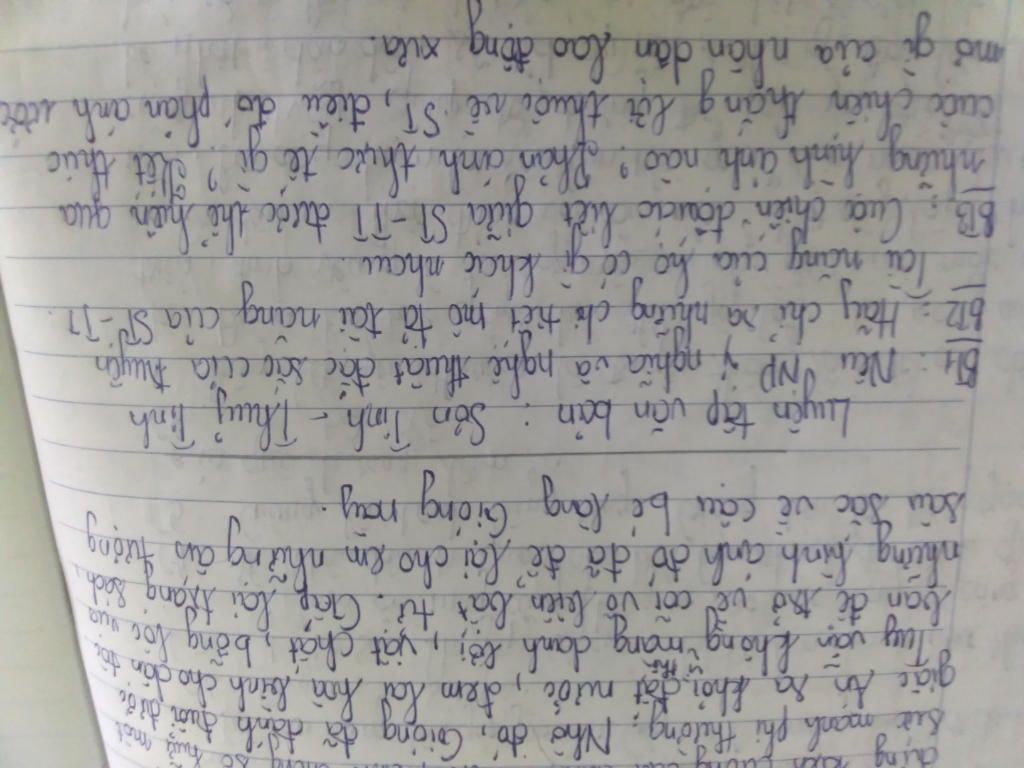 sức mạnh phi thường. Nhờ đó, Gióng đã đánh đuổi được
giặc Ân ra khỏi đất nước, đem lại hòa bình cho dân tộc
Tuy vẫn không màng danh lợi, vật chất, bỗng
bản để trở về cõi vô biên bất tử. Gấp lại trang sách,
những hình ảnh đó đã để lại cho em những ấn tượng
sâu sắc về cậu bé làng Gióng này.
Luyện tập văn bản: Sơn Tinh - Thuỷ Tinh
BT1: Nêu ND ý nghĩa và nghệ thuật đặc sắc của truyện
BT2: Hãy chỉ ra những chi tiết mô tả tài năng của ST-TT.
Tài năng của họ có gì khác nhau.
BT3: Cuộc chiến đấu ác liệt giữa ST-TT được thể hiện qua
những hình ảnh nào? Phản ánh thực tế gì? Kết thúc
cuộc chiến thắng lợi thuộc về ST, điều đó phản ánh ước
mơ gì của nhân dân lao động xưa.